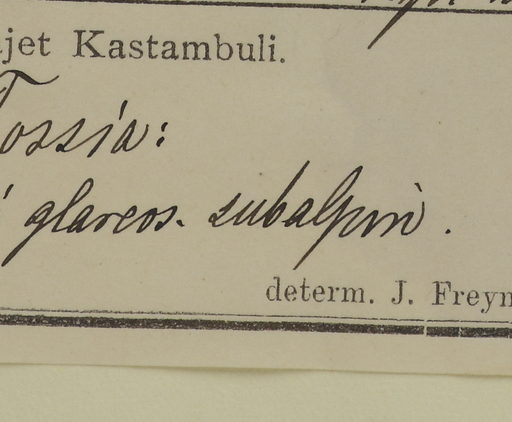 jet Kastambuli.
Tossia:
glareos. subalpin.
determ. J. Freyn